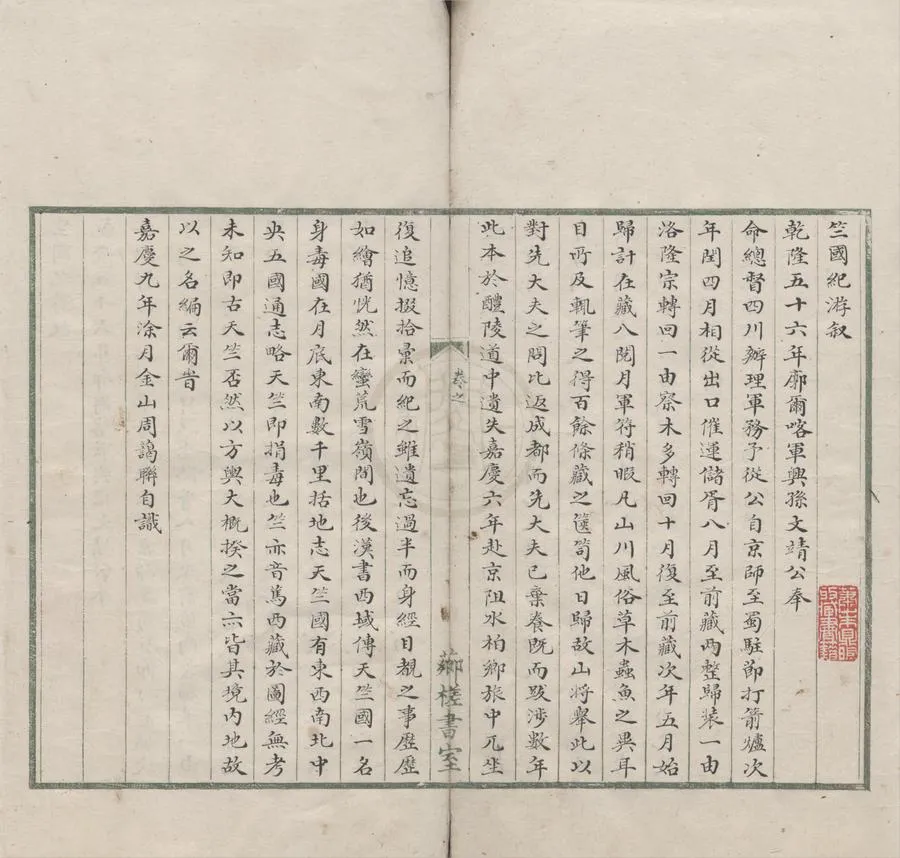 竺國紀游叙
乾隆五十六年廓爾喀軍興孫文靖公奉
命總督四川辦理軍務予從公自京師至蜀駐節打箭爐次
年閏四月相從出口催運儲胥八月至前藏兩整歸裝一由
洛隆宗轉回一由察木多轉回十月復至前藏次年五月始
歸計在藏八閱月軍符稍暇凡山川風俗草木蟲魚之異耳
目所及輒筆之得百餘條藏之篋笥他日歸故山將舉此以
對先大夫之問比返成都而先大夫已棄養既而跋涉數年
此本於醴陵道中遺失嘉慶六年赴京阻水柏鄉旅中兀坐
卷之
薌槎書室
復追憶掇拾彙而紀之雖遺忘過半而身經目覩之事歷歷
如繪猶恍然在蠻荒雪嶺間也後漢書西域傳天竺國一名
身毒國在月底東南數千里括地志天竺國有東西南北中
央五國通志略天竺即捐毒也竺亦音篤西藏於圖經無考
未知即古天竺否然以方輿大概揆之當亦皆其境内地故
以之名編云爾昔
嘉慶九年涂月金山周藹聯自識